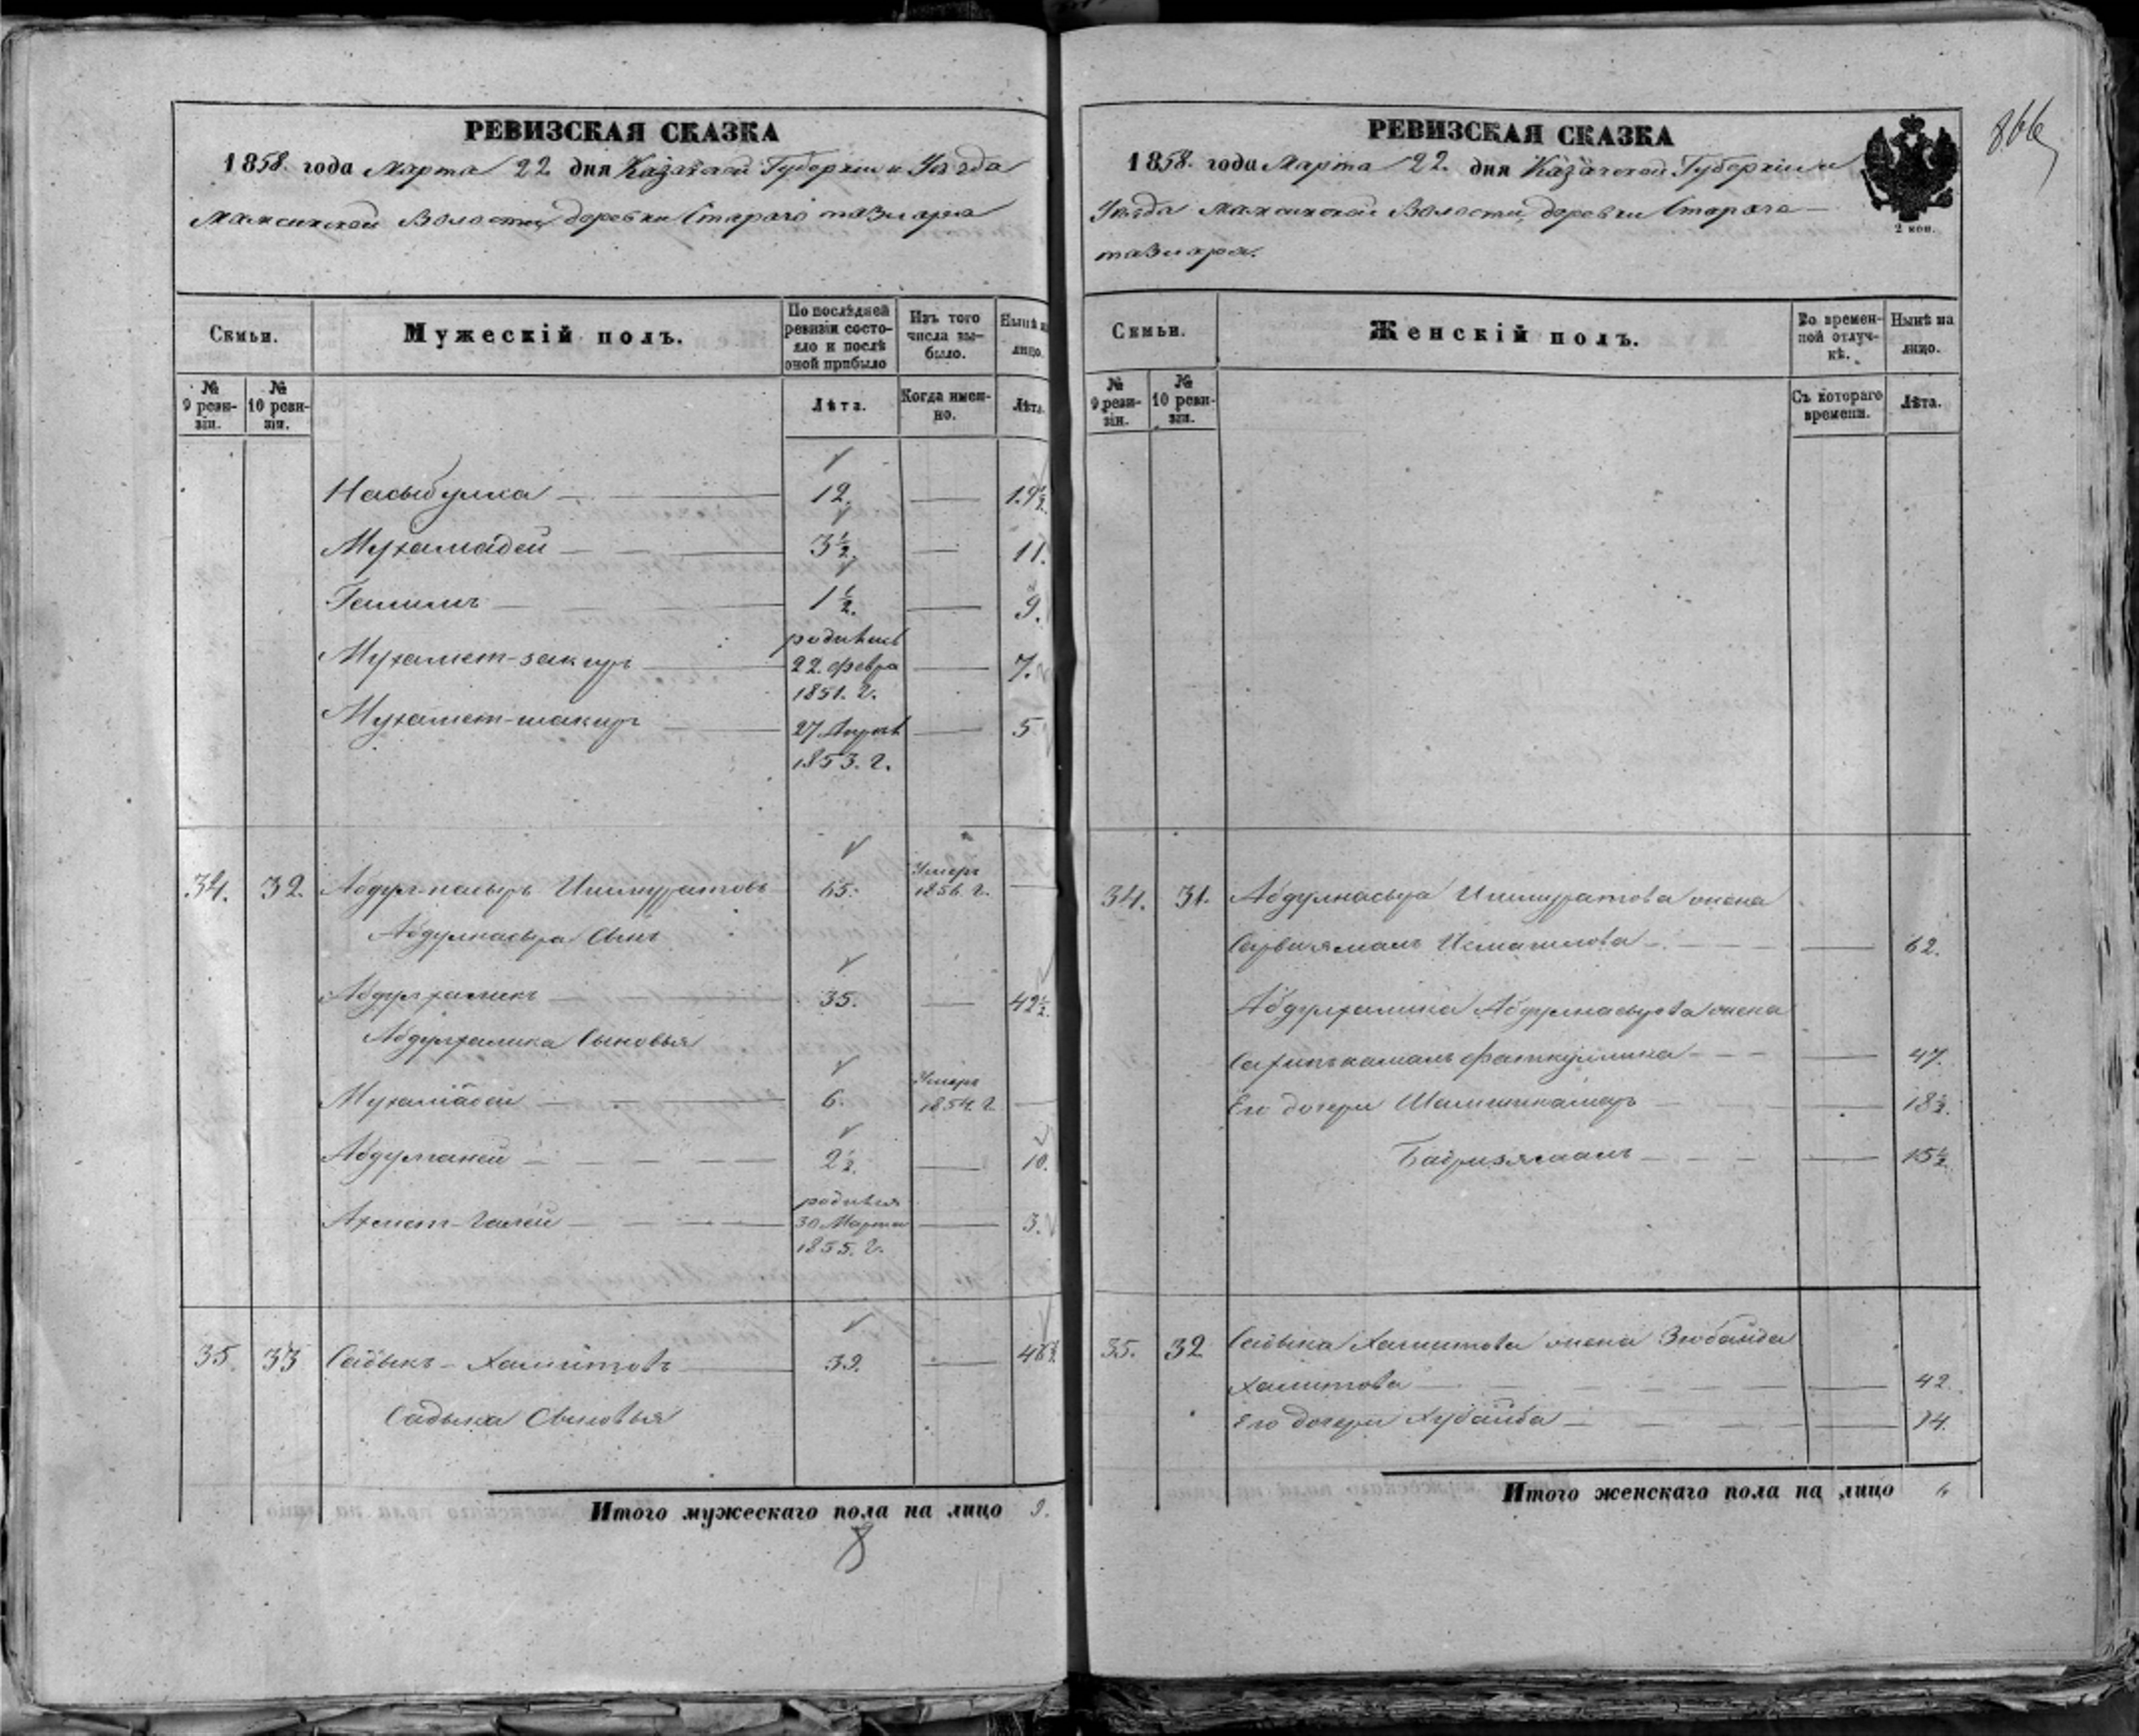 РЕВИЗСКАЯ СКАЗКА
1858. года Марта 22 дня Казанской Губернии и Уѣзда
Мамсинской Волости деревни Стараго тазлара
Семьи.
Мужескій полъ.
По послѣдней ревизіи состояло и послѣ оной прибыло
Изъ того числа выбыло.
Нынѣ на лицо.
№ 9 ревизіи.
№ 10 ревизіи.
Лѣта.
Когда именно.
Лѣта.
Насыбулла 12. 19½.
Мухамадей 3½. 11.
Галимъ 1½. 9.
родились
Мухамет-закиръ 22. февра 7.
1851. г.
Мухамет-шакиръ 27 Апрѣл 5
1853. г.
34. 32. Абдул-насыръ Ишмуратовъ 65. Умеръ 1856. г.
Абдулнасыра Сынъ
Абдулхаликъ 35. 42½.
Абдулхалика Сыновья
Мухамадей 6. Умеръ 1854. г.
Абдулганей 2½. 10.
родился
Ахмет-Галей 30 Марта 3.
1855. г.
35. 33 Садыкъ Хамитовъ 39. 46½.
Садыка Сыновья
Итого мужескаго пола на лицо 9.
8
866
РЕВИЗСКАЯ СКАЗКА
1858. года Марта 22. дня Казанской Губерніи и
Уѣзда Мамсинской Волости, деревни Стараго
тазлара.
2 коп.
Семьи.
Женскій полъ.
Во временной отлучкѣ.
Нынѣ на лицо.
№ 9 ревизіи.
№ 10 ревизіи.
Съ котораго времени.
Лѣта.
34. 31. Абдулнасыра Ишмуратова жена
Исмагилова 62.
Абдулхалика Абдулнасырова жена
Фаткуллина 47.
Его дочери Шамсикамаръ 18½.
Бадризямалъ 15½.
35. 32 Садыка Хамитова жена Зюбайда
Хамитова 42.
Его дочери Хубайба 14.
Итого женскаго пола на лицо 6